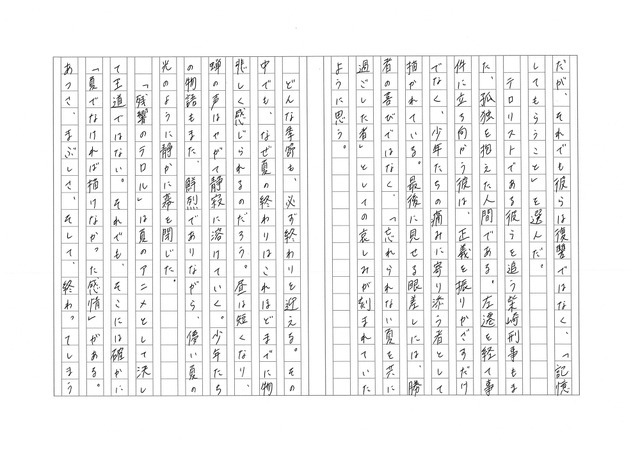 だが、それでも彼らは復讐ではなく、「記憶
してもらうこと」を選んだ。
テロリストである彼らを追う柴崎刑事もま
た、孤独を抱えた人間である。左遷を経て事
件に立ち向かう彼は、正義を振りかざすだけ
でなく、少年たちの痛みに寄り添う者として
描かれている。最後に見せる眼差しには、勝
者の喜びではなく、「忘れられない夏を共に
過ごした者」としての哀しみが刻まれていた
ように思う。
どんな季節も、必ず終わりを迎える。その
中でも、なぜ夏の終わりはこれほどまでに物
悲しく感じられるのだろう。昼は短くなり、
蝉の声はやがて静寂に溶けていく。少年たち
の物語もまた、鮮烈でありながら、儚い夏の
光のように静かに幕を閉じた。
「残響のテロル」は夏のアニメとして決し
て王道ではない。それでも、そこには確かに
「夏でなければ描けなかった感情」がある。
あつさ、まぶしさ、そして、終わってしまう